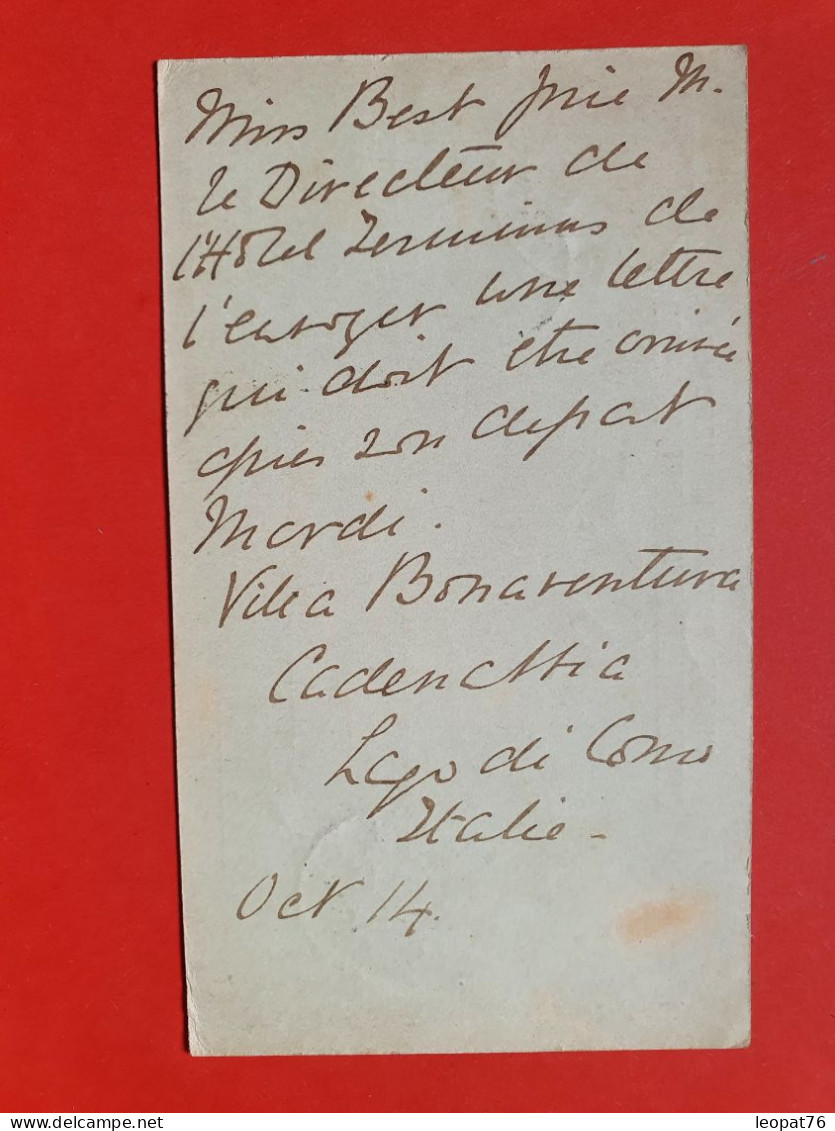 Miss Best prie M.
le Directeur de
l'Hôtel Terminus de
l'envoyer une lettre
qui doit être arrivée
après son depart
Mardi.
Villa Bonaventura
Cadenabbia
Lago di Como
Italie -
Oct 14.
leopat76